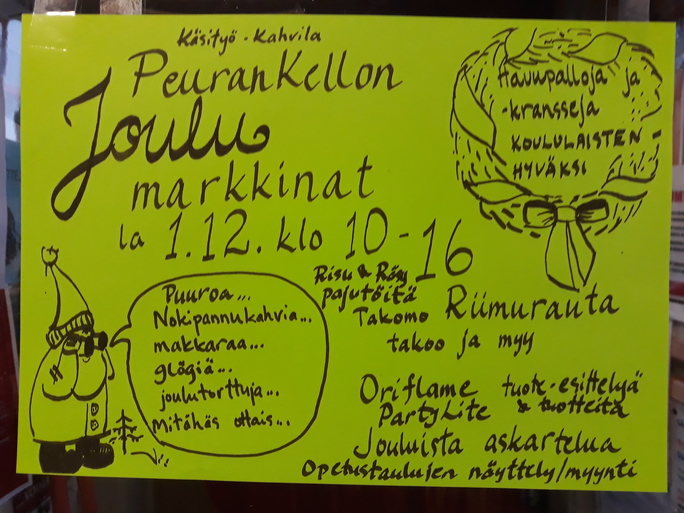 Käsityö - Kahvila
PeuranKellon
Joulu
markkinat
la 1.12. klo 10-16
Havupalloja ja
-kransseja
KOULULAISTEN
HYVÄKSI
Puuroa...
Nokipannukahvia...
makkaraa...
glögiä...
joulutorttuja...
Mitähäs ottais...
Risu & Räsy
pajutöitä
Takomo Riimurauta
takoo ja myy
Oriflame tuote-esittelyä
PartyLite & tuotteita
Jouluista askartelua
Opetustaulujen näyttely/myynti